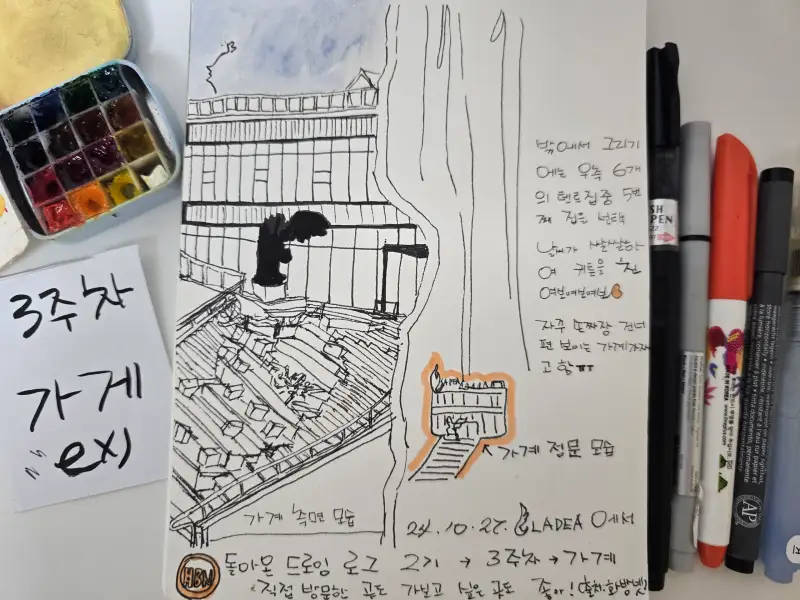 3주차
가게
ex)
밖에서 그리기
에는 우측 6개
의 텐트집중 5번
째 집을 선택
날씨가 쌀쌀하
여
자주
편 보이는 가게가자
고 함ㅠㅠ
LADEA
가게 정문 모습
가게 측면 모습
24.10.27. LADEA 에서
HBN 돌아온 드로잉 로그 2기 → 3주차 → 가게
직접 방문한 곳도 가보고 싶은 곳도 좋아! (출처.화방넷)
SH
PEN
AP